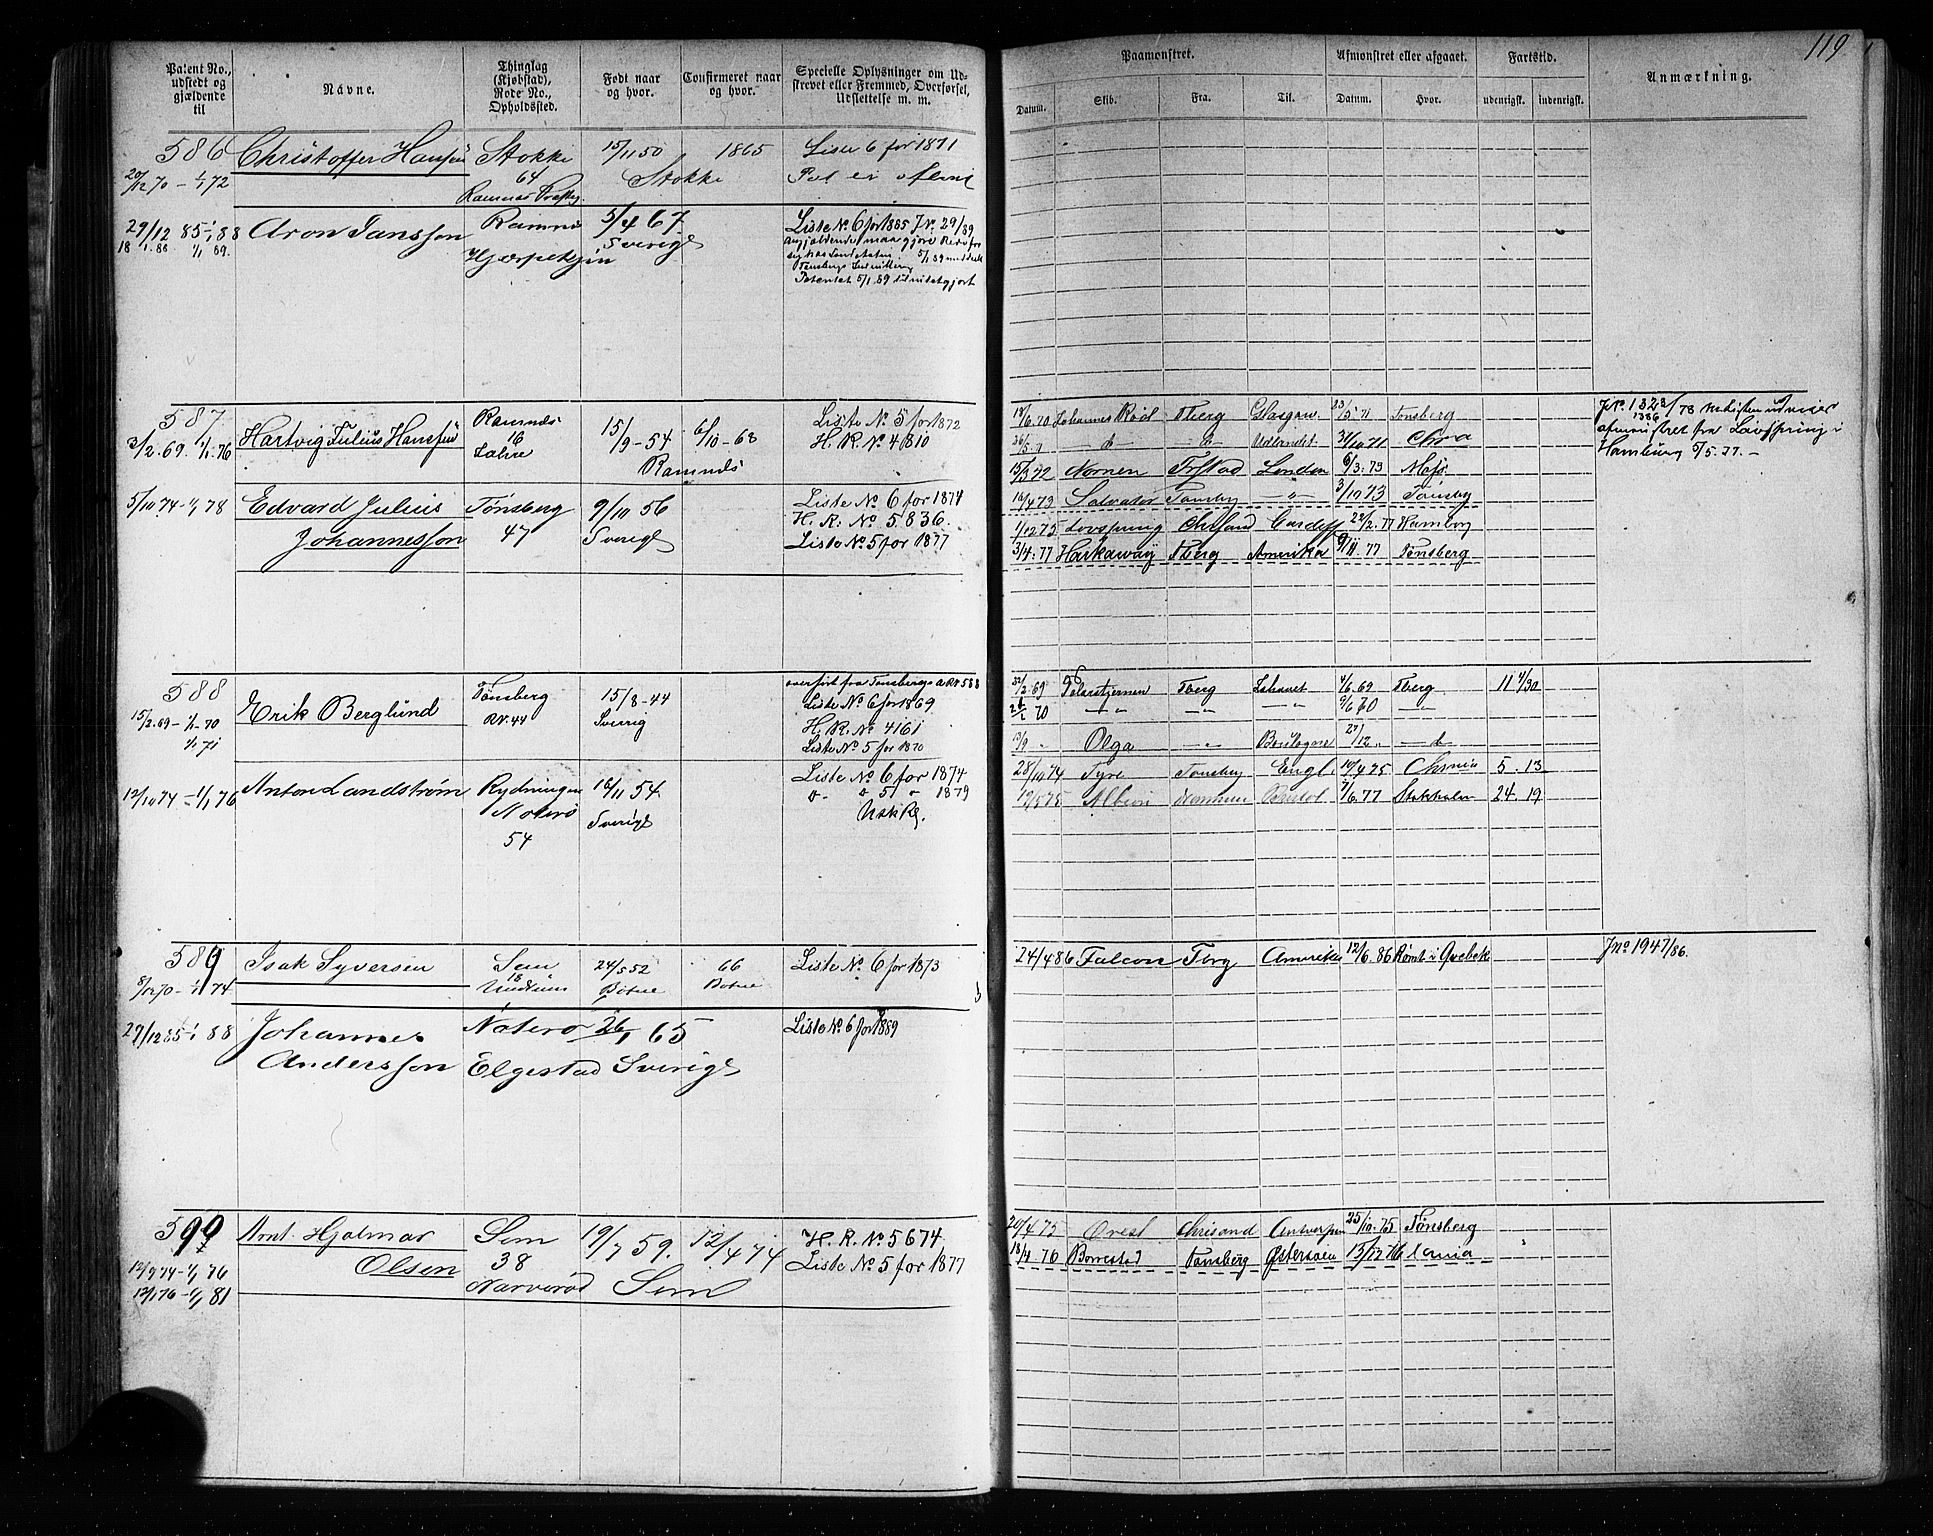 119
Patent No., udstedt og gjældende til
Navne.
Thinglag (Kjøbstad), Rode No., Opholdssted.
Født naar og hvor.
Confirmeret naar og hvor.
Specielle Oplysninger om Udskrevet eller Fremmed, Overførsel, Udslettelse m. m.
Paamønstret.
Afmønstret eller afgaaet.
Fartstid.
Anmærkning.
Datum. Skib. Fra. Til. Datum. Hvor. udenrigsk. indenrigsk.
586 Christoffer Hansen Stokke 15/11 50 1865 Liste 6 for 1871
20/12 70 – 1/1 72 64 Stokke
Ramnæs
29/12 85 – 1/1 88 Aron Jansson Ramnæs 5/4 67. Liste No 6 for 1885 J No 29/89
18/1 88 1/1 89. Sverige
5/1 89
587 Hartvig Julius Hansen Ramnæs 15/9–54 6/10–68 Liste No 5 for 1872
3/2.69. 1/1.76 16 Ramnæs H. R. No 4810
5/10 74 – 1/1 78 Edvard Julius Tønsberg 9/10 56 Liste No 6 for 1874
Johannesson 47 Sverige H. R. No 5836.
Liste No 5 for 1877
18/6.70 Johannes Rød Tberg Glasgow 23/5 71 Tønsberg
Udlandet 31/10 71 Chra
15/3 72 Nornen Fr.stad London 6/3.73
16/4 73 Salvator Tønsbg 3/10 73 Tønsbg
1/12 75 Løvspring Chrsand Cardiff 28/2.77 Hamborg
3/4.77 Harkaway Tberg Amerika 9/11.77 Tønsberg
J No. 1323/78
1386
afmønstret fra Løvspring i
Hamburg 5/5.77. –
588 Erik Berglund Tønsberg 15/8–44 overført fra Tønsbergs
15/2.69 – 1/1.70 R№.44 Sverig Liste No 6 for 1869
1/1.71 H. R. No 4161
Liste No 5 for 1870
12/10 74 – 1/1 76 Anton Landstrøm Rydningen 18/11 54. Liste No 6 for 1874
Nøterø Sverige 5 1879
54
2.69 Polarstjernen Tberg Ishavet 4/6.69 Tberg 11 4/30
70
Olga Boulogne
28/10 74 Tyre Tønsbg Engl. 10/4 75 Chrania 5. 13
19/5 75 Albion Bristol 7/6.77 Stokholm 24. 19
589 Isak Syversen Sem 24/5 52 66 Liste No. 6 for 1873
8/12 70 – 1/1 74 18 Botne Botne
Undrum
29/12 85 – 1/1 88 Johannes Nøterø 26/1 65 Liste No 6 for 1889
Andersson Elgestad Sverige
24/4 86 Falcon Tbrg Amerika 12/6.86 Rømt i Qvebek
J No 1947/86.
590 Arnt Hjalmar Sem 19/7 59. 12/4 74 H. R. No 5674.
12/7 74 – 1/1 76 Olsen 38 Sem Liste No 5 for 1877
12/1 76 – 1/1 81 Narverød
20/4.75 Orest Chrisand Antverpen 25/10.75 Tønsberg
18/4.76 Borrestad Tønsberg Østersøen 13/12 76